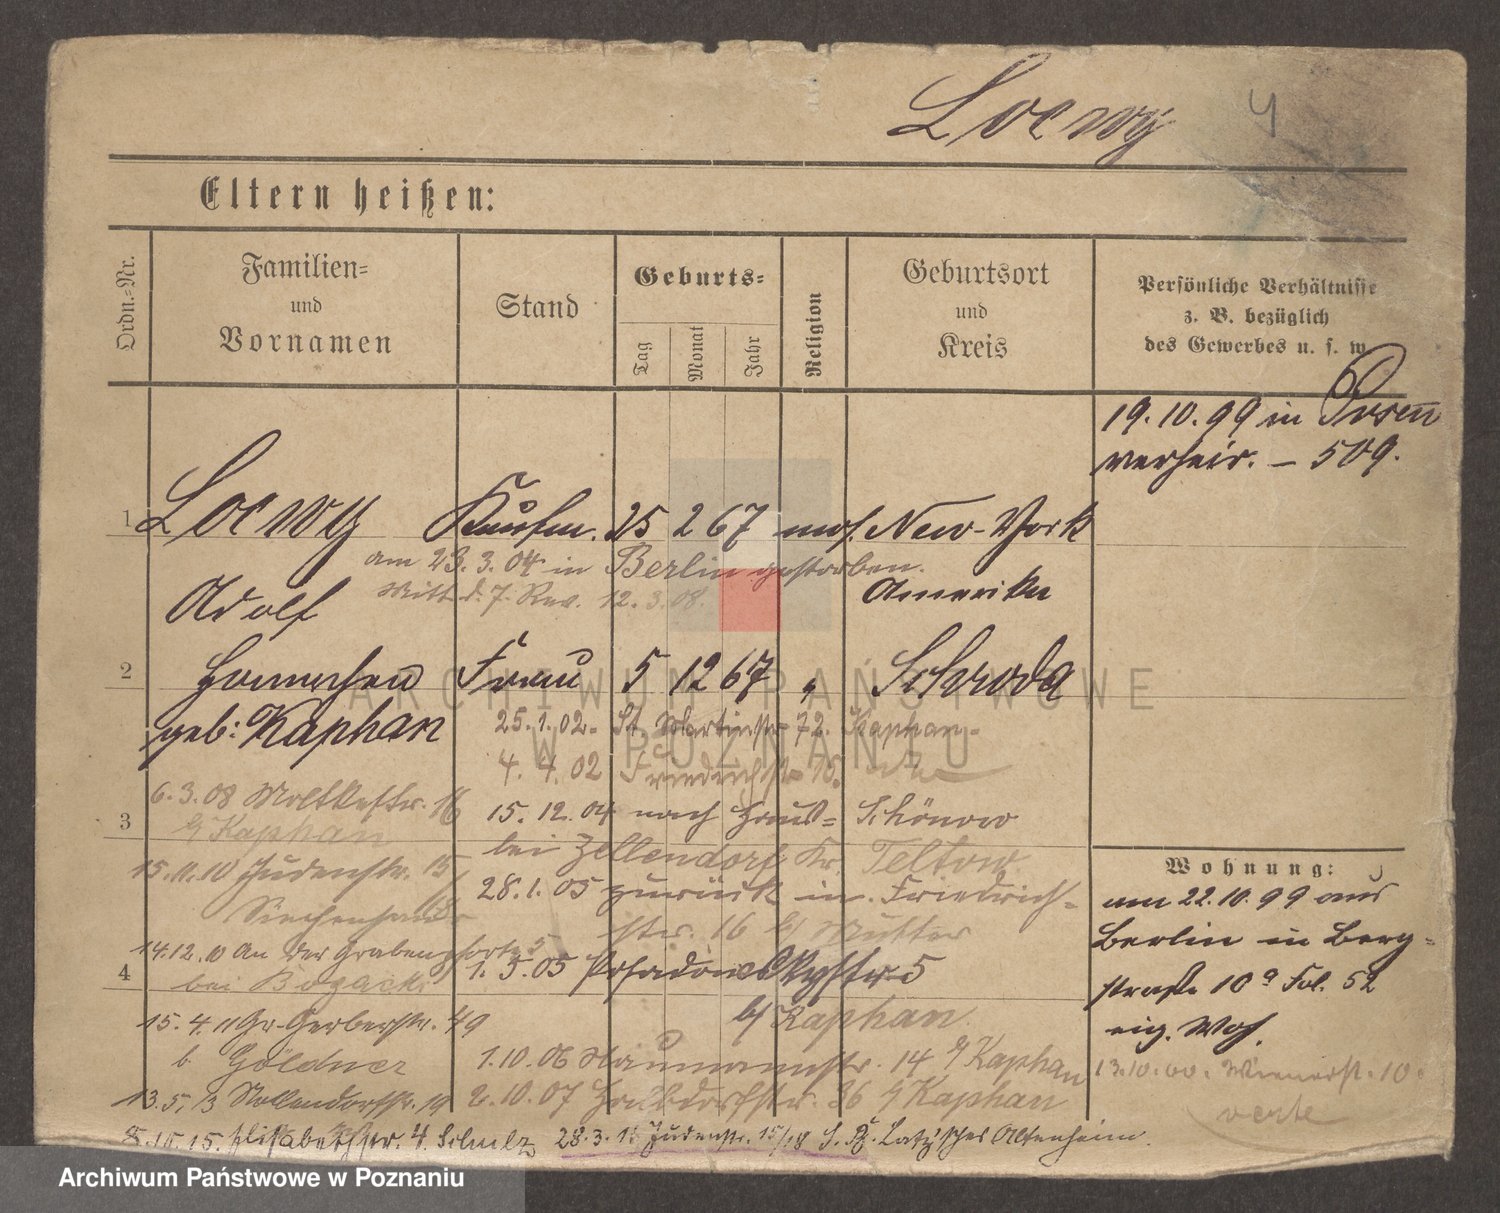 Loewy 4
Eltern heißen:
Ordn.-Nr.
Familien-
und
Vornamen
Stand
Geburts-
Tag
Monat
Jahr
Religion
Geburtsort
und
Kreis
Persönliche Verhältnisse
z. B. bezüglich
des Gewerbes u. s. w.
19. 10. 99 in Posen
verheir. – 509.
1 Loewy Kaufm. 25 2 67 mos. New-York
am 23. 3. 04 in Berlin gestorben.
Adolf Amerika
Mitt. d. 7. Rev. 12. 3. 08.
2 Frau 5 12 67 " Schroda
geb: Kaphan
25. 1. 02. St. Martinstr 72. Kaphan.
4. 4. 02 Friedrichstr
6. 3. 08 Moltkestr. 16
b/ Kaphan
3
15. 12. 04 nach Schönow
bei Zellendorf Kr. Teltow.
15. 11. 10 Judenstr. 15/
Siechenhaus
28. 1. 05 zurück in. Friedrich-
str. 16 b/ Mutter
14. 12. 10 An der Grabenpforte 5
bei
4
1. 5. 05 Posadowskystr. 5
b/ Kaphan.
15. 4. 11 Gr. Gerberstr. 49
b. Göldner
1. 10. 06 Naumannstr. 14 b/ Kaphan
13. 5. 13 Nollendorfstr. 19
2. 10. 07 36 b/ Kaphan
15. Elisabethstr. 4. Schulz
28. 3. Judenstr. 15/18 Latz'sches Altenheim.
Wohnung:
am 22. 10. 99 aus
Berlin in Berg-
straße 10a Fol. 52
eig. Woh.
13. 10. 00. Wienerst. 10.
verte
ARCHIWUM PAŃSTWOWE
W POZNANIU
Archiwum Państwowe w Poznaniu